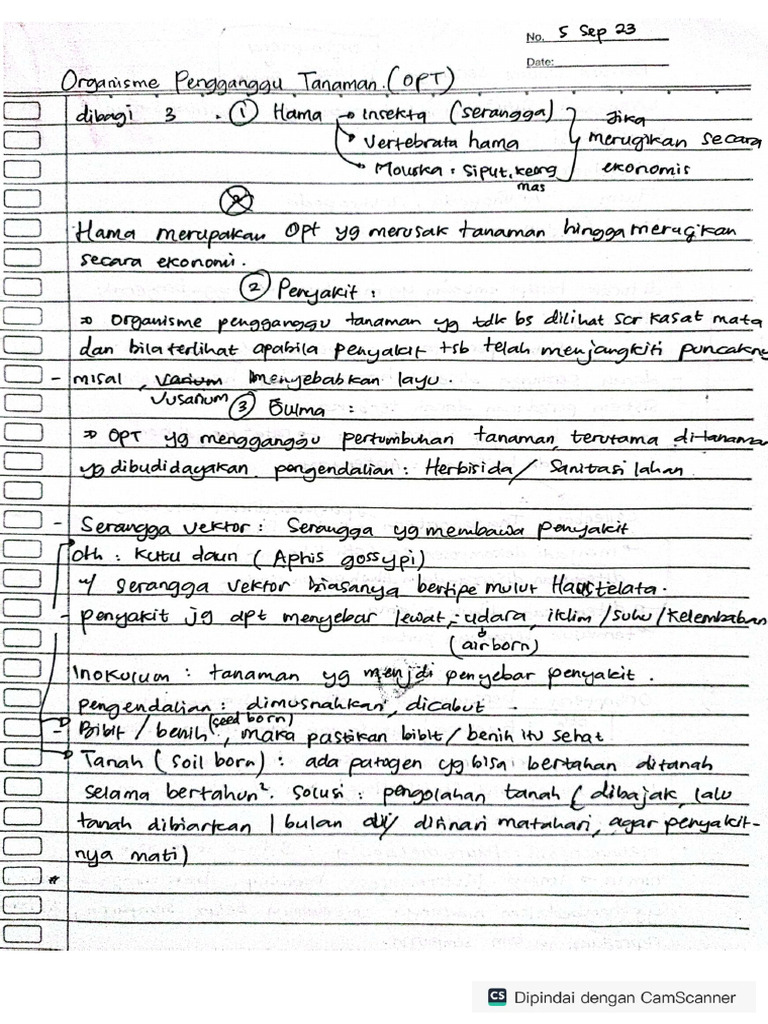 No. 5 Sep 23
Date:
Organisme Pengganggu Tanaman. (OPT)
dibagi 3 . ① Hama → Insekta (serangga) } Jika
→ Vertebrata hama merugikan secara
→ Mouska : Siput, keong ekonomis
mas
Hama merupakan Opt yg merusak tanaman hingga merugikan
secara ekonomi.
② Penyakit :
⇒ Organisme pengganggu tanaman yg tdk bs dilihat scr kasat mata
dan bila terlihat apabila penyakit tsb telah menjangkiti puncakny
- misal, menyebabkan layu.
Vusarium
③ Gulma :
⇒ OPT yg mengganggu pertumbuhan tanaman, terutama ditanama
yg dibudidayakan. pengendalian : Herbisida / Sanitasi lahan
- Serangga vektor : Serangga yg membawa penyakit
Cth : Kutu daun (Aphis gossypi)
serangga vektor biasanya bertipe mulut Haustelata.
- penyakit jg dpt menyebar lewat, - udara, iklim / suhu / kelembaban
(airborn)
Inokulum : tanaman yg menjdi penyebar penyakit.
pengendalian : dimusnahkan, dicabut .
(seed born)
- Bibit / benih , maka pastikan bibit / benih itu sehat
Tanah (soil born) : ada patogen yg bisa bertahan ditanah
selama bertahun². solusi : pengolahan tanah ( dibajak, lalu
tanah dibiarkan 1 bulan disinari matahari, agar penyakit-
nya mati)
*
CS Dipindai dengan CamScanner